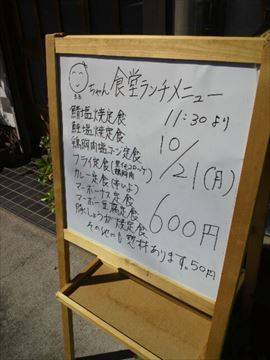 ちゃん食堂ランチメニュー
11:30より
10/21(月)
鯖塩焼定食
鮭塩焼定食
鶏胸肉塩コーン定食
フライ定食(黒イモコロッケ 鶏胸肉)
カレー定食(辛いよ)
マーボーナス定食
マーボー豆腐定食
豚しょうが焼定食
600円
その他にも惣材あります。50円